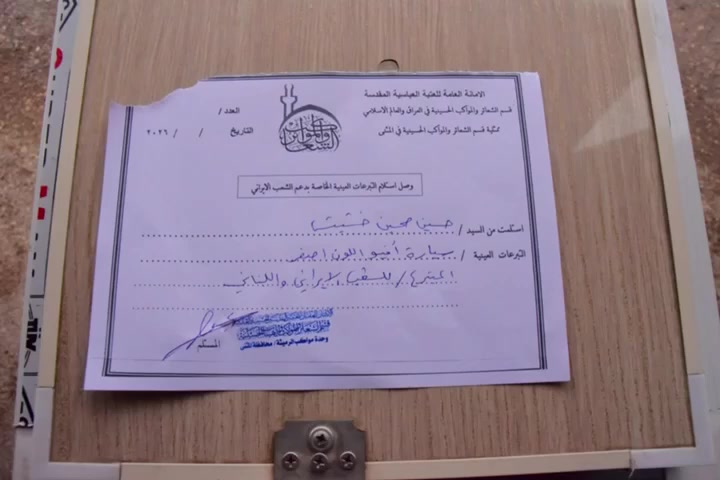 الامانة العامة للعتبة العباسية المقدسة
قسم الشعائر والمواكب الحسينية في العراق والعالم الاسلامي
ممثلية قسم الشعائر والمواكب الحسينية في المثنى
العدد /
التاريخ / / ٢٠٢٦
وصل استلام التبرعات العينية الخاصة بدعم الشعب الايراني
استلمت من السيد / حسين محسن
التبرعات العينية / سيارة اللون اصفر
المتبرع / للشعب الايراني واللبناني
المستلم
وحدة مواكب الرميثة / محافظة المثنى